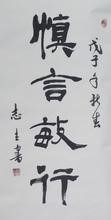 慎言敏行
戊子年秋
志
书